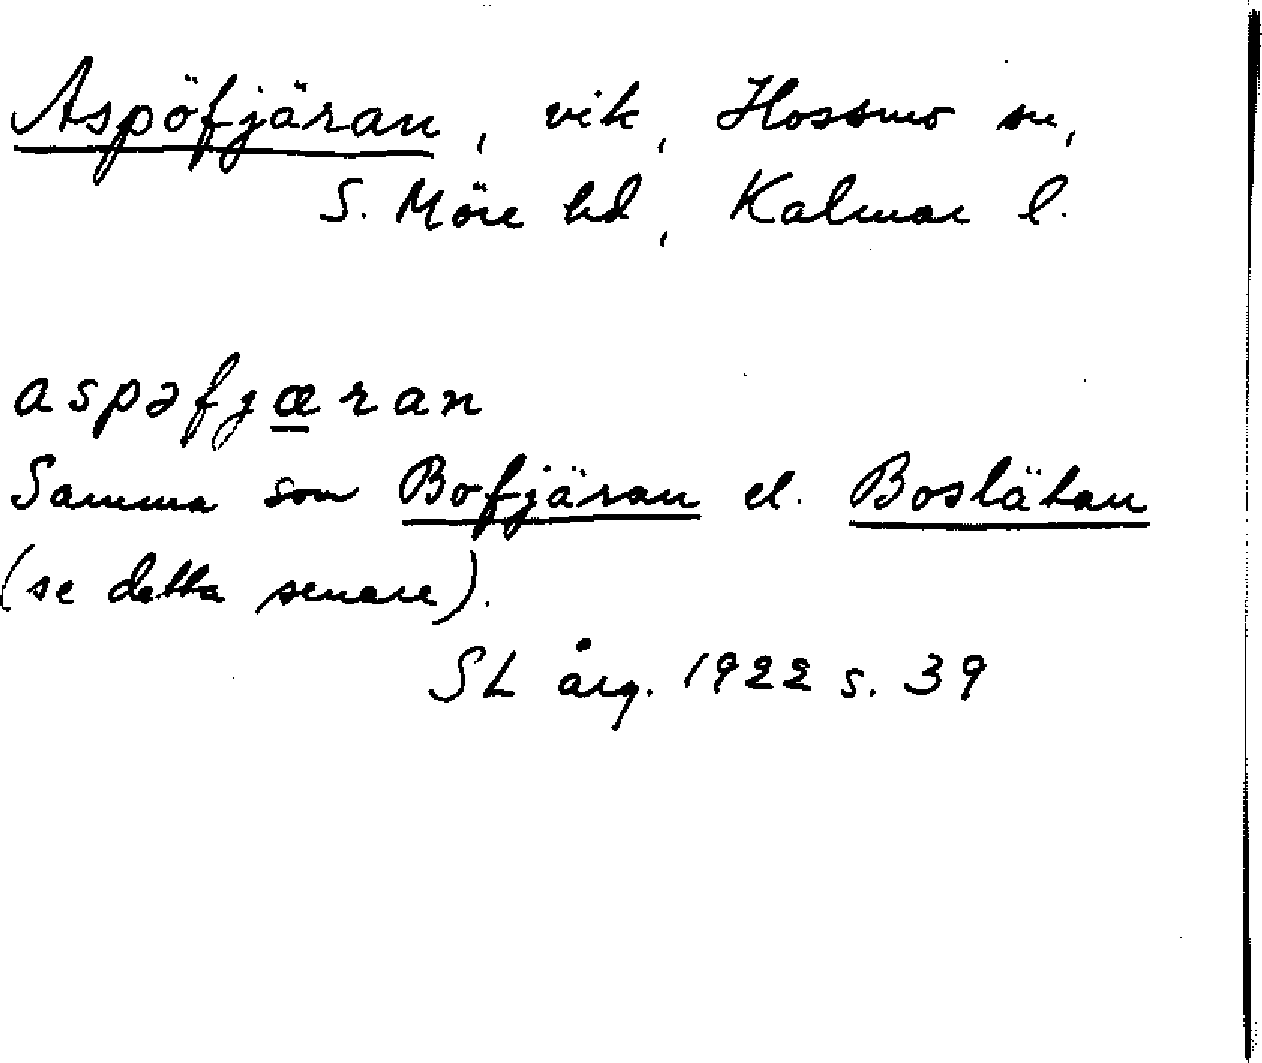 Aspöfjäran, vik, Hossmo sn,
S. Möre hd, Kalmar l.
aspəfjæran
Samma som Bofjäran el. Boslätan
(se detta senare).
SL årg. 1922 s. 39